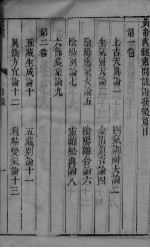 黃帝內經素問註證發微篇目
第一卷
上古天真論一
四氣調神大論二
生氣通天論三
金匱真言論四
陰陽應象大論五
陰陽離合論六
陰陽別論七
靈蘭秘典論八
六節藏象論九
第二卷
五藏生成論十
五藏別論十一
異法方宜論十二
移精變氣論十三